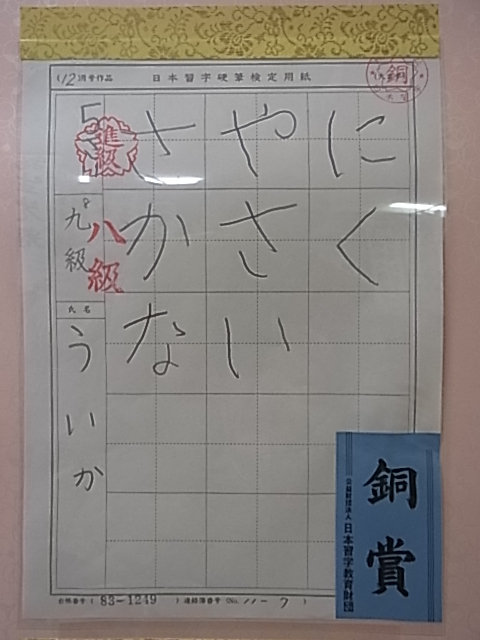 (12月号作品
日本習字硬筆検定用紙
銅
にく
やさい
さかな
進級
九級
八級
氏名
ういか
台帳番号(83-1249)連絡簿番号(No. 11-7)
銅賞
公益財団法人
日本習字教育財団